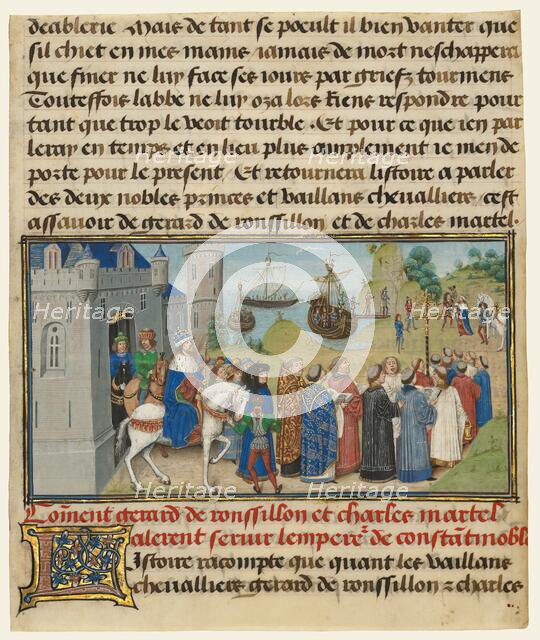 deablerie Mais de tant se poeult il bien vanter que
sil chiet en mes mains iamais de mort neschappera
que finer ne luy face ses iours par griefz tourmens
Touteffois labbe ne luy oza lors riens respondre pour
tant que trop le veoit tourble . Et pour ce que ien par
leray en temps et en lieu plus amplement ie men de
porte pour le present / Et retournera listoire a parler
des deux nobles princes et vaillans chevalliers / cest
assavoir de gerard de roussillon et de charles martel .
Com̄ent gerard de roussillon et charles martel
alerent servir lempere᷑ de constātinoble
Listoire racompte que quant les vaillans
chevalliers gerard de roussillon ⁊ charles
Heritage Images
Heritage Images
Heritage Images
Heritage Images
Heritage Images
Heritage Images
Heritage Images